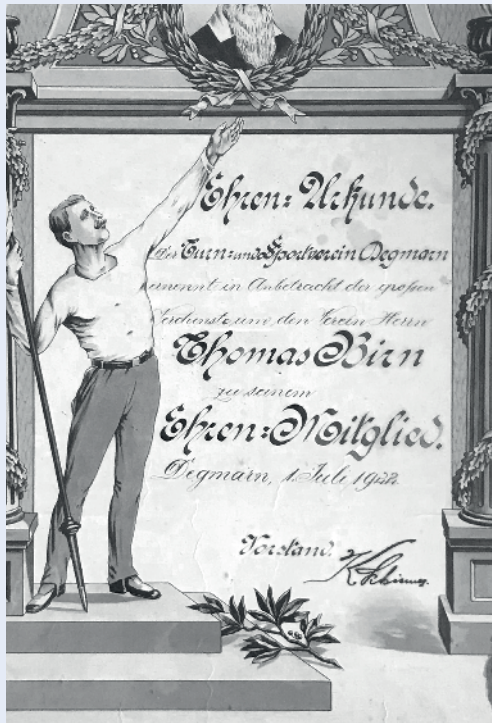 Ehren=Urkunde.
Der Turn= und Sportverein Degmarn
ernennt in Anbetracht der großen
Verdienste um den Verein Herrn
Thomas Birn
zu seinem
Ehren=Mitglied.
Degmarn, 1. Juli, 19
Vorstand.